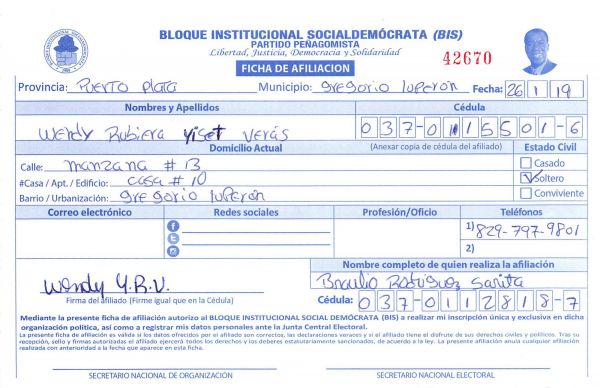 BLOQUE INSTITUCIONAL SOCIALDEMÓCRATA (BIS)
PARTIDO PEÑAGOMISTA
Libertad, Justicia, Democracia y Solidaridad
FICHA DE AFILIACION
42670
Provincia: Puerto Plata Municipio: gregorio luperón Fecha: 26 1 19
Nombres y Apellidos Cédula
Wendy Rubiera Yiset Verás 037-0115501-6
Domicilio Actual (Anexar copia de cédula del afiliado) Estado Civil
Calle: manzana # 13 Casado
#Casa / Apt. / Edificio: casa # 10 Soltero
Barrio / Urbanización: gregorio luperón Conviviente
Correo electrónico Redes sociales Profesión/Oficio Teléfonos
1) 829-797-9801
2)
Nombre completo de quien realiza la afiliación
Wendy Y.R.V. Braulio Rodriguez Sarita
Firma del afiliado (Firme igual que en la Cédula) Cédula: 037-0112818-7
Mediante la presente ficha de afiliación autorizo al BLOQUE INSTITUCIONAL SOCIAL DEMÓCRATA (BIS) a realizar mi inscripción única y exclusiva en dicha
organización política, así como a registrar mis datos personales ante la Junta Central Electoral.
La presente ficha de afiliación es valida si los datos ofrecidos por el afiliado son correctos, las declaraciones veraces y si el afiliado tiene el disfrute de sus derechos civiles y políticos. Tras su
recepción, sello y firmas autorizadas el afiliado ejercerá todos los derechos y los deberes estatutariamente sancionados, de acuerdo a la ley. La presente afiliación anula cualquier afiliación
realizada con anterioridad a la fecha que aparece en esta ficha.
SECRETARIO NACIONAL DE ORGANIZACIÓN SECRETARIO NACIONAL ELECTORAL